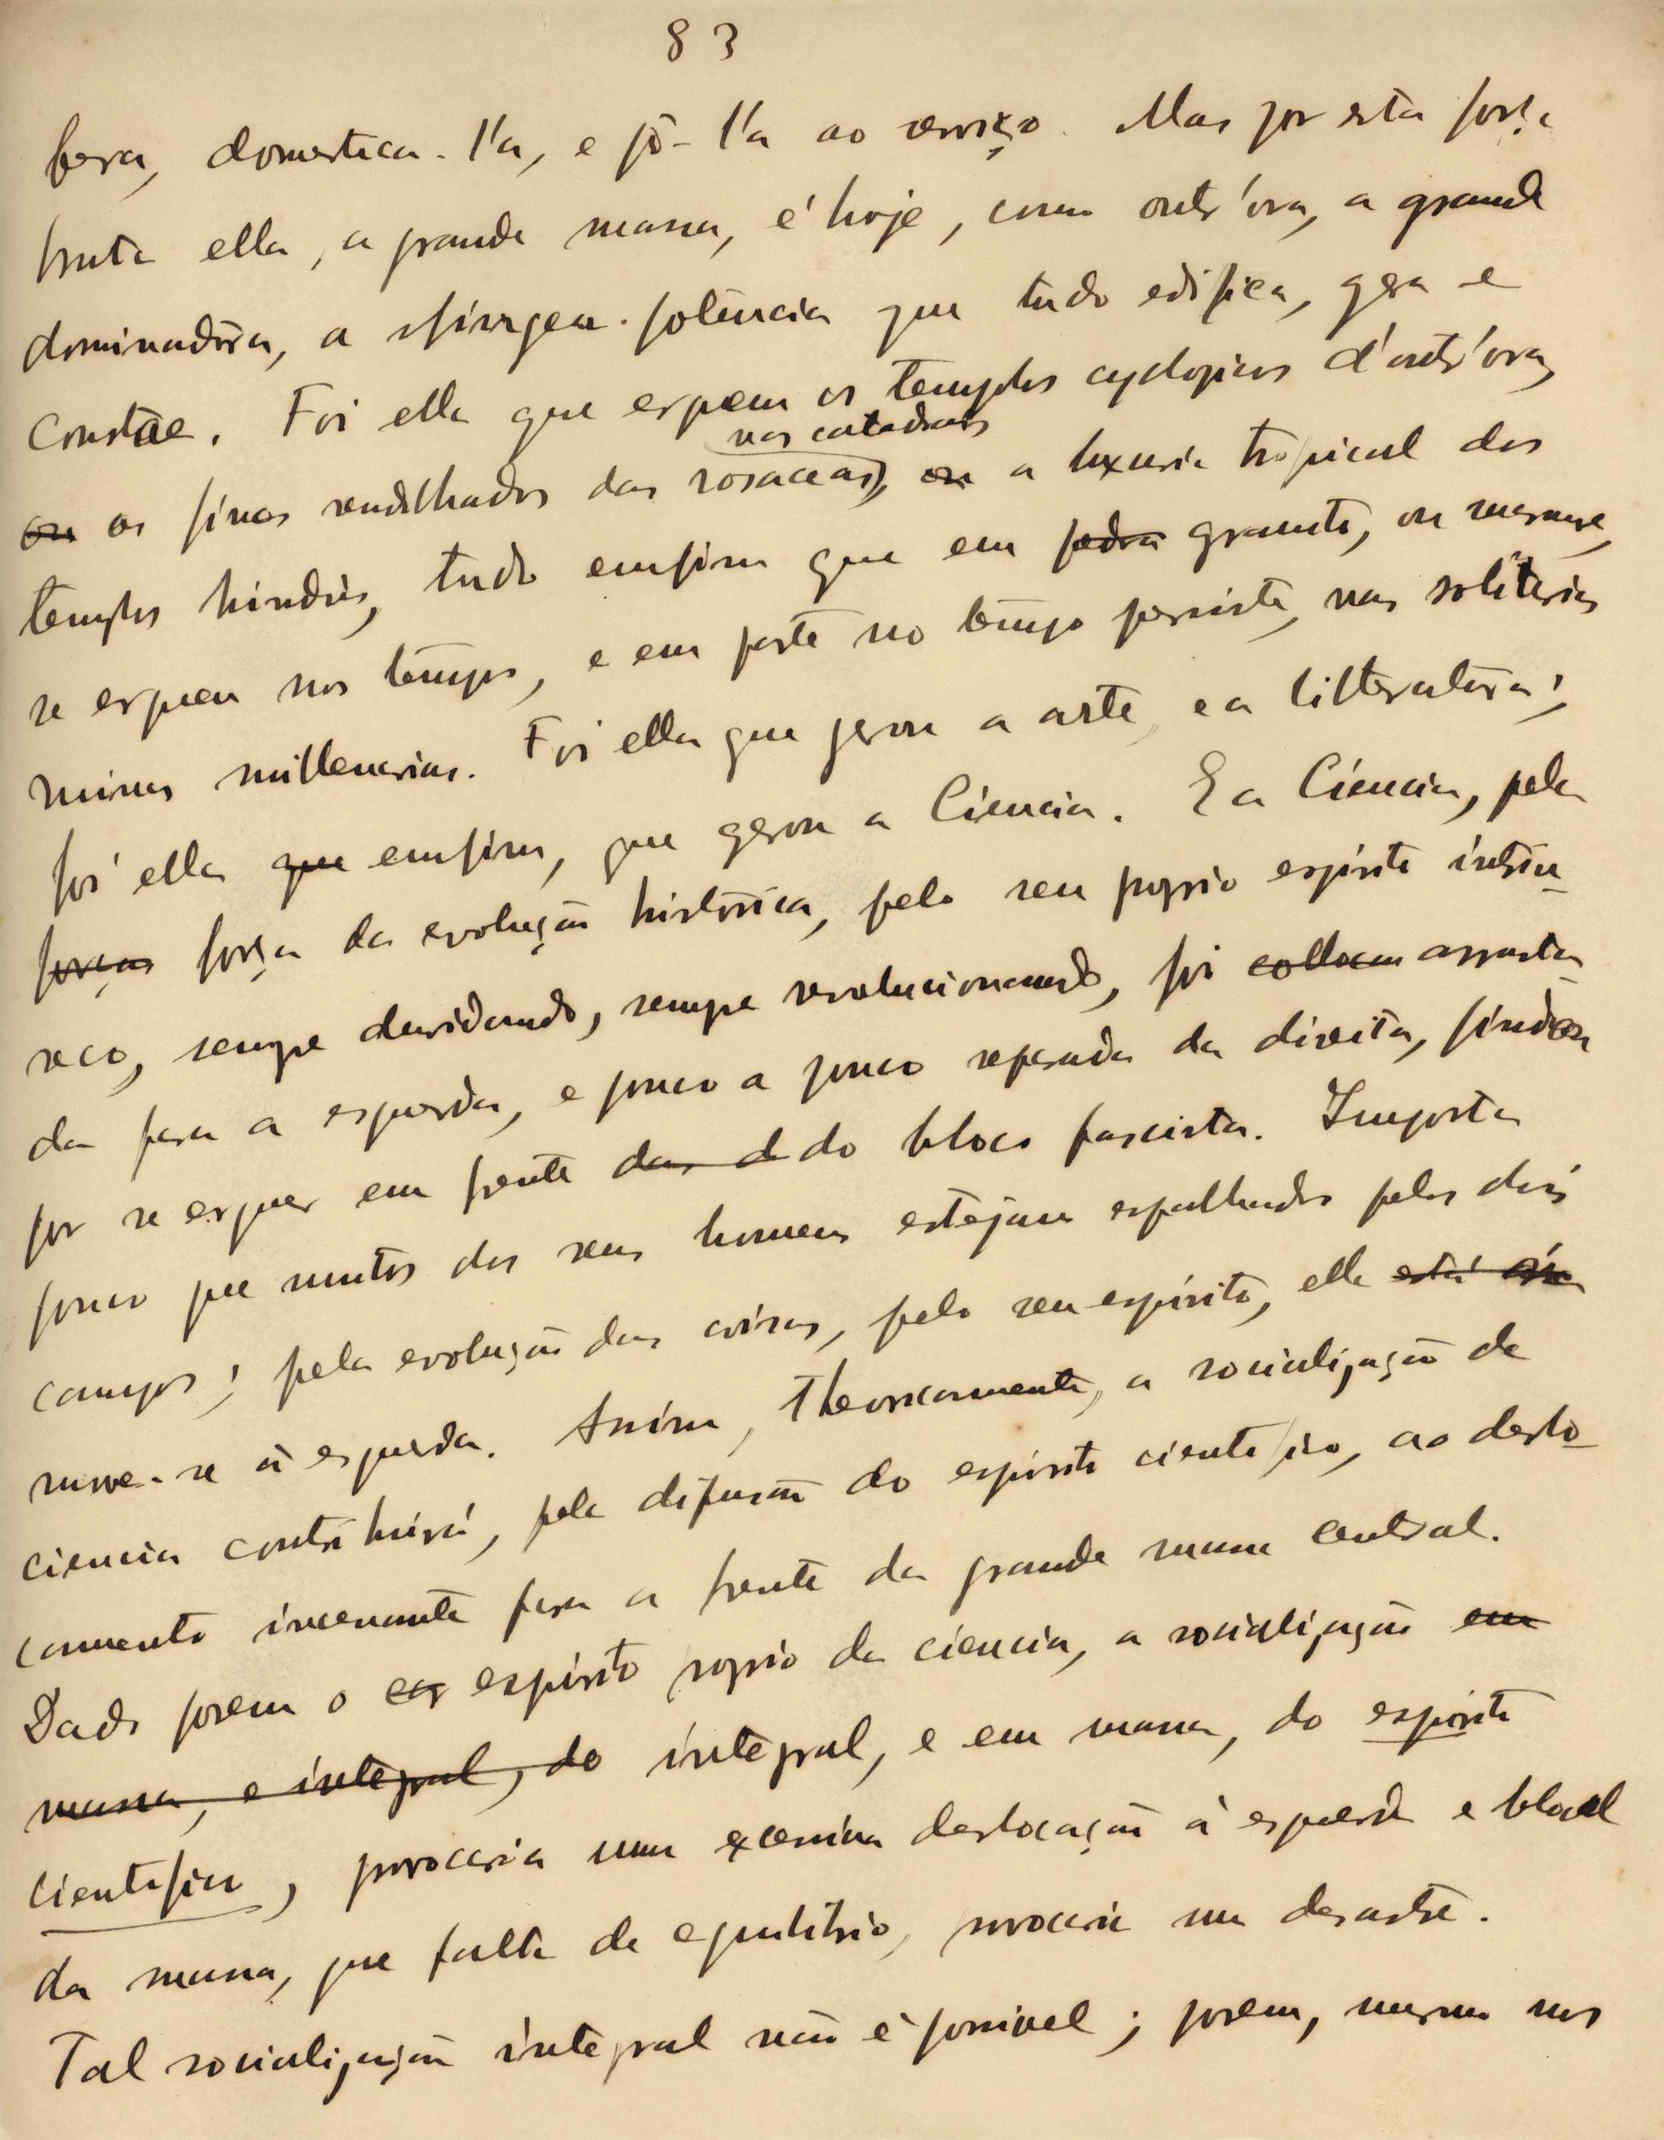 83
fera, domestica-l'a, e pô-l'a ao serviço. Mas por esta força
bruta ella, a grande massa, é hoje, como outr'ora, a grande
dominadora, a potencia que tudo edifica, gera e
constroe. Foi ella que ergueu os templos cyclopicos d'outr'ora,
nas catedraes
ou os finos rendilhados das rosaceas, ou a luxuria tropical dos
templos hindús, tudo emfim que em pedra granito, ou marmore,
se ergueu nos tempos, e em parte no tempo persiste, nas solitarias
ruinas millenarias. Foi ella que gerou a arte, e a litteratura;
foi ella que emfim, que gerou a Ciencia. E a Ciencia, pela
forças força da evolução historica, pelo seu proprio espirito intrin-
seco, sempre duvidando, sempre revolucionando, foi collocou arrasta-
da para a esquerda, e pouco a pouco separada da direita, findou
por se erguer em frente das d do bloco fascista. Importa
pouco que muitos dos seus homens estejam espalhados pelos dois
campos; pela evolução das coisas, pelo seu espirito, ella está
move-se á esquerda. Assim, theoricamente, a socialização da
ciencia contribuirá, pela difusão do espirito cientifico, ao deslo-
camento incessante para a frente da grande massa central.
Dado porem o esp espirito proprio da ciencia, a socialização em
massa, e integral, do integral, e em massa, do espirito
cientifico, provocaria uma excessiva deslocação á esquerda e
da massa, que falta de equilibrio, provocaria um desastre.
Tal socialização integral não é possivel; porem, mesmo nos